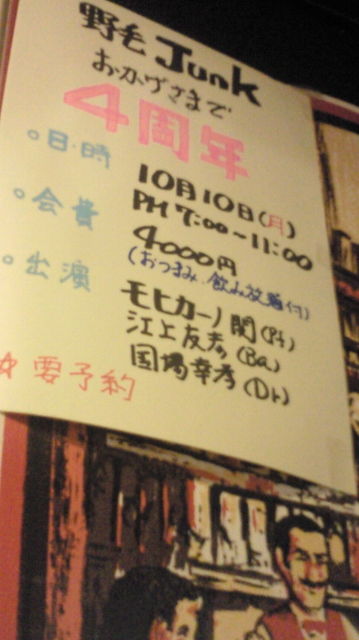 野毛 Junk
おかげさまで
4周年
○日・時
10月10日(月)
PM 7:00〜11:00
○会費
4000円
(おつまみ、飲み放題付)
○出演
モヒカーノ関(Pf)
江上友彦(Ba)
国場幸孝(Dr)
☆要予約